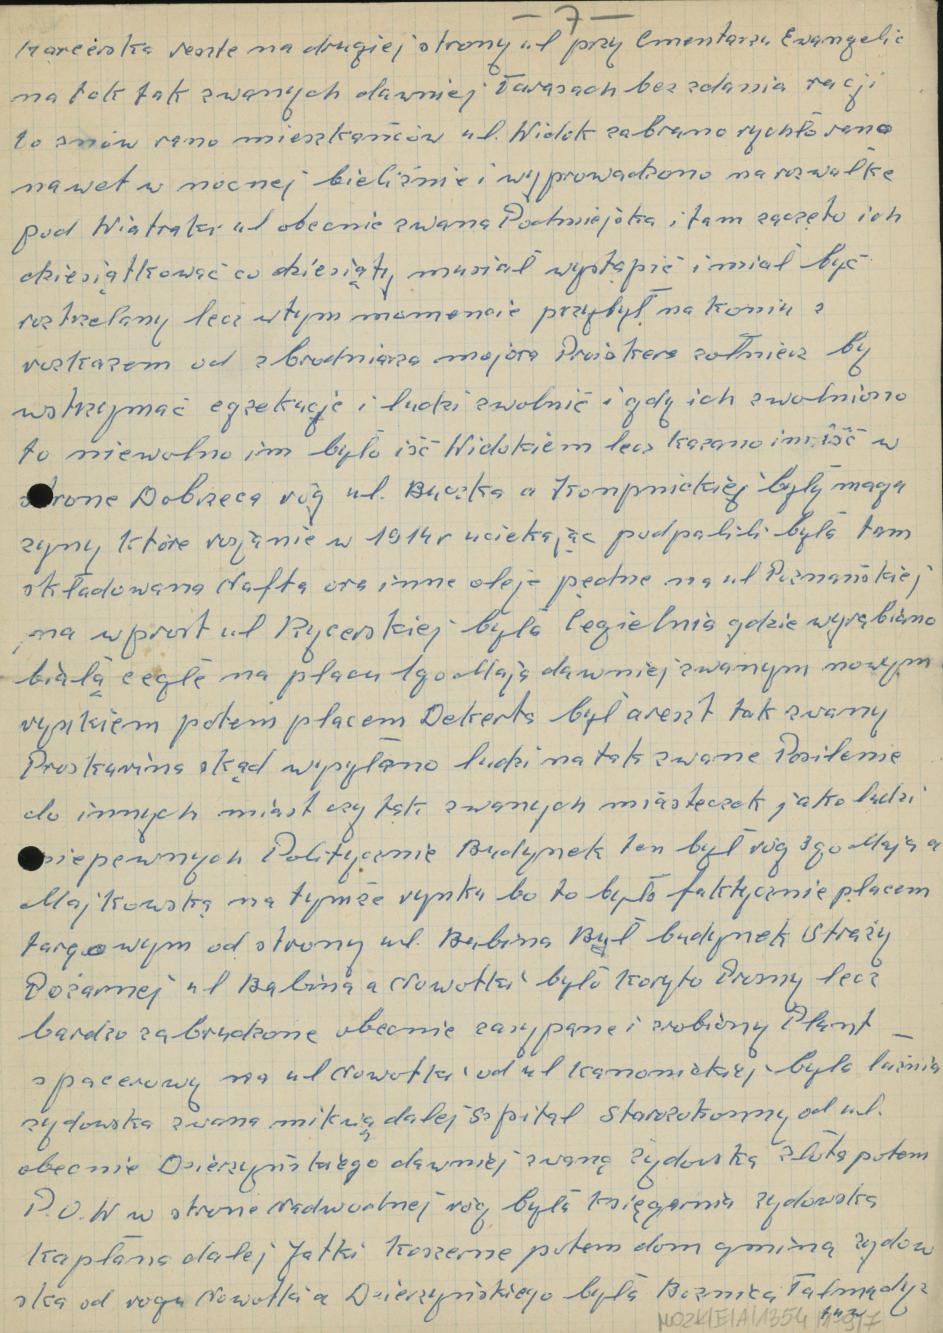 — 7 —
Harcerska reszte na drugiej strony ul przy Cmentarzu Ewangelic
na tak zwanych dawniej Tarasach bez zdania racji
to znów rano mieszkańców ul. Widok zabrano rychło rano
nawet w nocnej bieliźnie i wyprowadzono na rozwałkę
pod Wiatraki ul obecnie zwana Podmiejska i tam zaczęto ich
dziesiątkować co dziesiąty musiał wystąpić i miał być
rozstrzelany lecz wtym momencie przybył na koniu z
rozkazem od zbrodniarza majora Prajskera żołnierz by
wstrzymać egzekucję i ludzi zwolnić i gdy ich zwolniono
to niewolno im było iść Widokiem lecz kazano im iść w
strone Dobrzeca róg ul. Buczka a Konpnickiej były maga
zyny które rosjanie w 1914r uciekając podpalili była tam
składowana Nafta ora inne oleje pędne na ul Poznańskiej
na wprost ul Rycerskiej była Cegielnia gdzie wyrabiano
białą cegłę na placu 1go Maja dawniej zwanym nowym
rynkiem potem placem Dekerta był areszt tak zwany
Proskurina skąd wysyłano ludzi na tak zwane Posilenie
do innych miast czy tak zwanych miasteczek jako ludzi
niepewnych Politycznie Budynek ten był róg 3go Maja a
Majkowską na tymże rynku bo to było faktycznie placem
targowym od strony ul. Babina Był budynek Straży
Pożarnej ul Babina a Nowotki było koryto Prosny lecz
bardzo zabrudzone obecnie zasypane i zrobiony Plant
spacerowy na ul Nowotki od ul Kanonickiej była łaźnia
zydowska zwana mikwą dalej Szpital Starozokonny od ul.
obecnie Dzierzyńskiego dawniej zwaną Zydowską Złota potem
P.O.W w strone Nadwodnej róg była Księgarnia zydowska
Kapłana dalej Jatki Koszerne potem dom gminą zydow
ska od rogu Nowotki a Dzierzyńskiego była Boznica Talmudycz
MOZK/E/A/1354